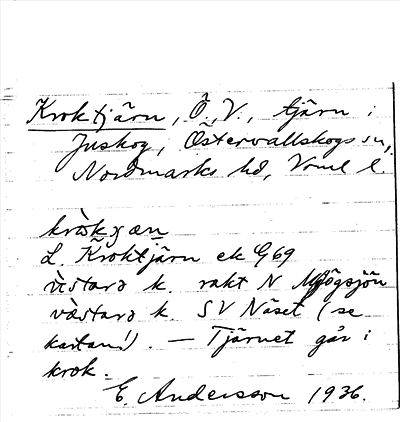 Kroktjärn, Ö., V., tjärn i
Juskog, Östervallskogs sn,
Nordmarks hd, Vrml l.
L. Kroktjärn ek G69
k. rakt N Mjögsjön
västarə k. SV Näset (se
kartan!). — Tjärnet går i
krok.
E. Andersson 1936.